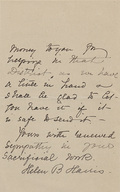 money to you for
helping in that
District, as we have
a little in hand &
shall be glad to let
you have it if it
is safe to send it –
Yours with renewed
sympathy in your
Sacrificial work.
Helen B Harris.